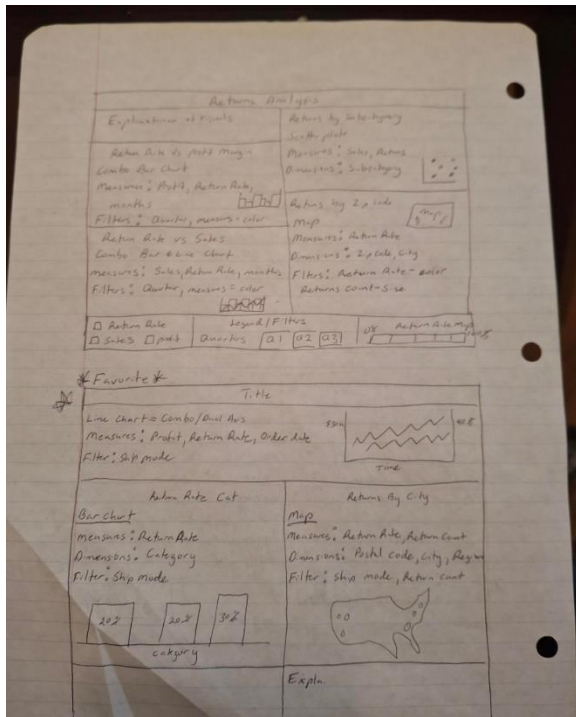 Returns Analysis
Explanation of visuals
Return Rate vs profit Margin
Combo Bar Chart
Measures: Profit, Return Rate,
months
Filters: Quarter, measures = color
Return Rate vs Sales
Combo Bar & Line Chart
measures: Sales, Return Rate, months
Filters: Quarter, measures = color
Returns by Subcategory
Scatter plot
Measures: Sales, Returns
Dimensions: Subcategory
Returns by Zip code
Map
Map
Measures: Return Rate
Dimensions: Zip code, City
Filters: Return Rate - color
Returns count - Size
Return Rate
Sales profit
Legend/Filters
Quarters Q1 Q2 Q3
0% Return Rate Map 100%
Favorite
Title
Line Chart = Combo/Dual Axis
Measures: Profit, Return Rate, Order date
Filter: Ship mode
Time
Return Rate Cat
Bar Chart
measures: Return Rate
Dimensions: Category
Filter: Ship mode
20% 20% 30%
category
Returns By City
Map
Measures: Return Rate, Return Count
Dimensions: Postal code, City, Region
Filter: ship mode, Return count
Expla.